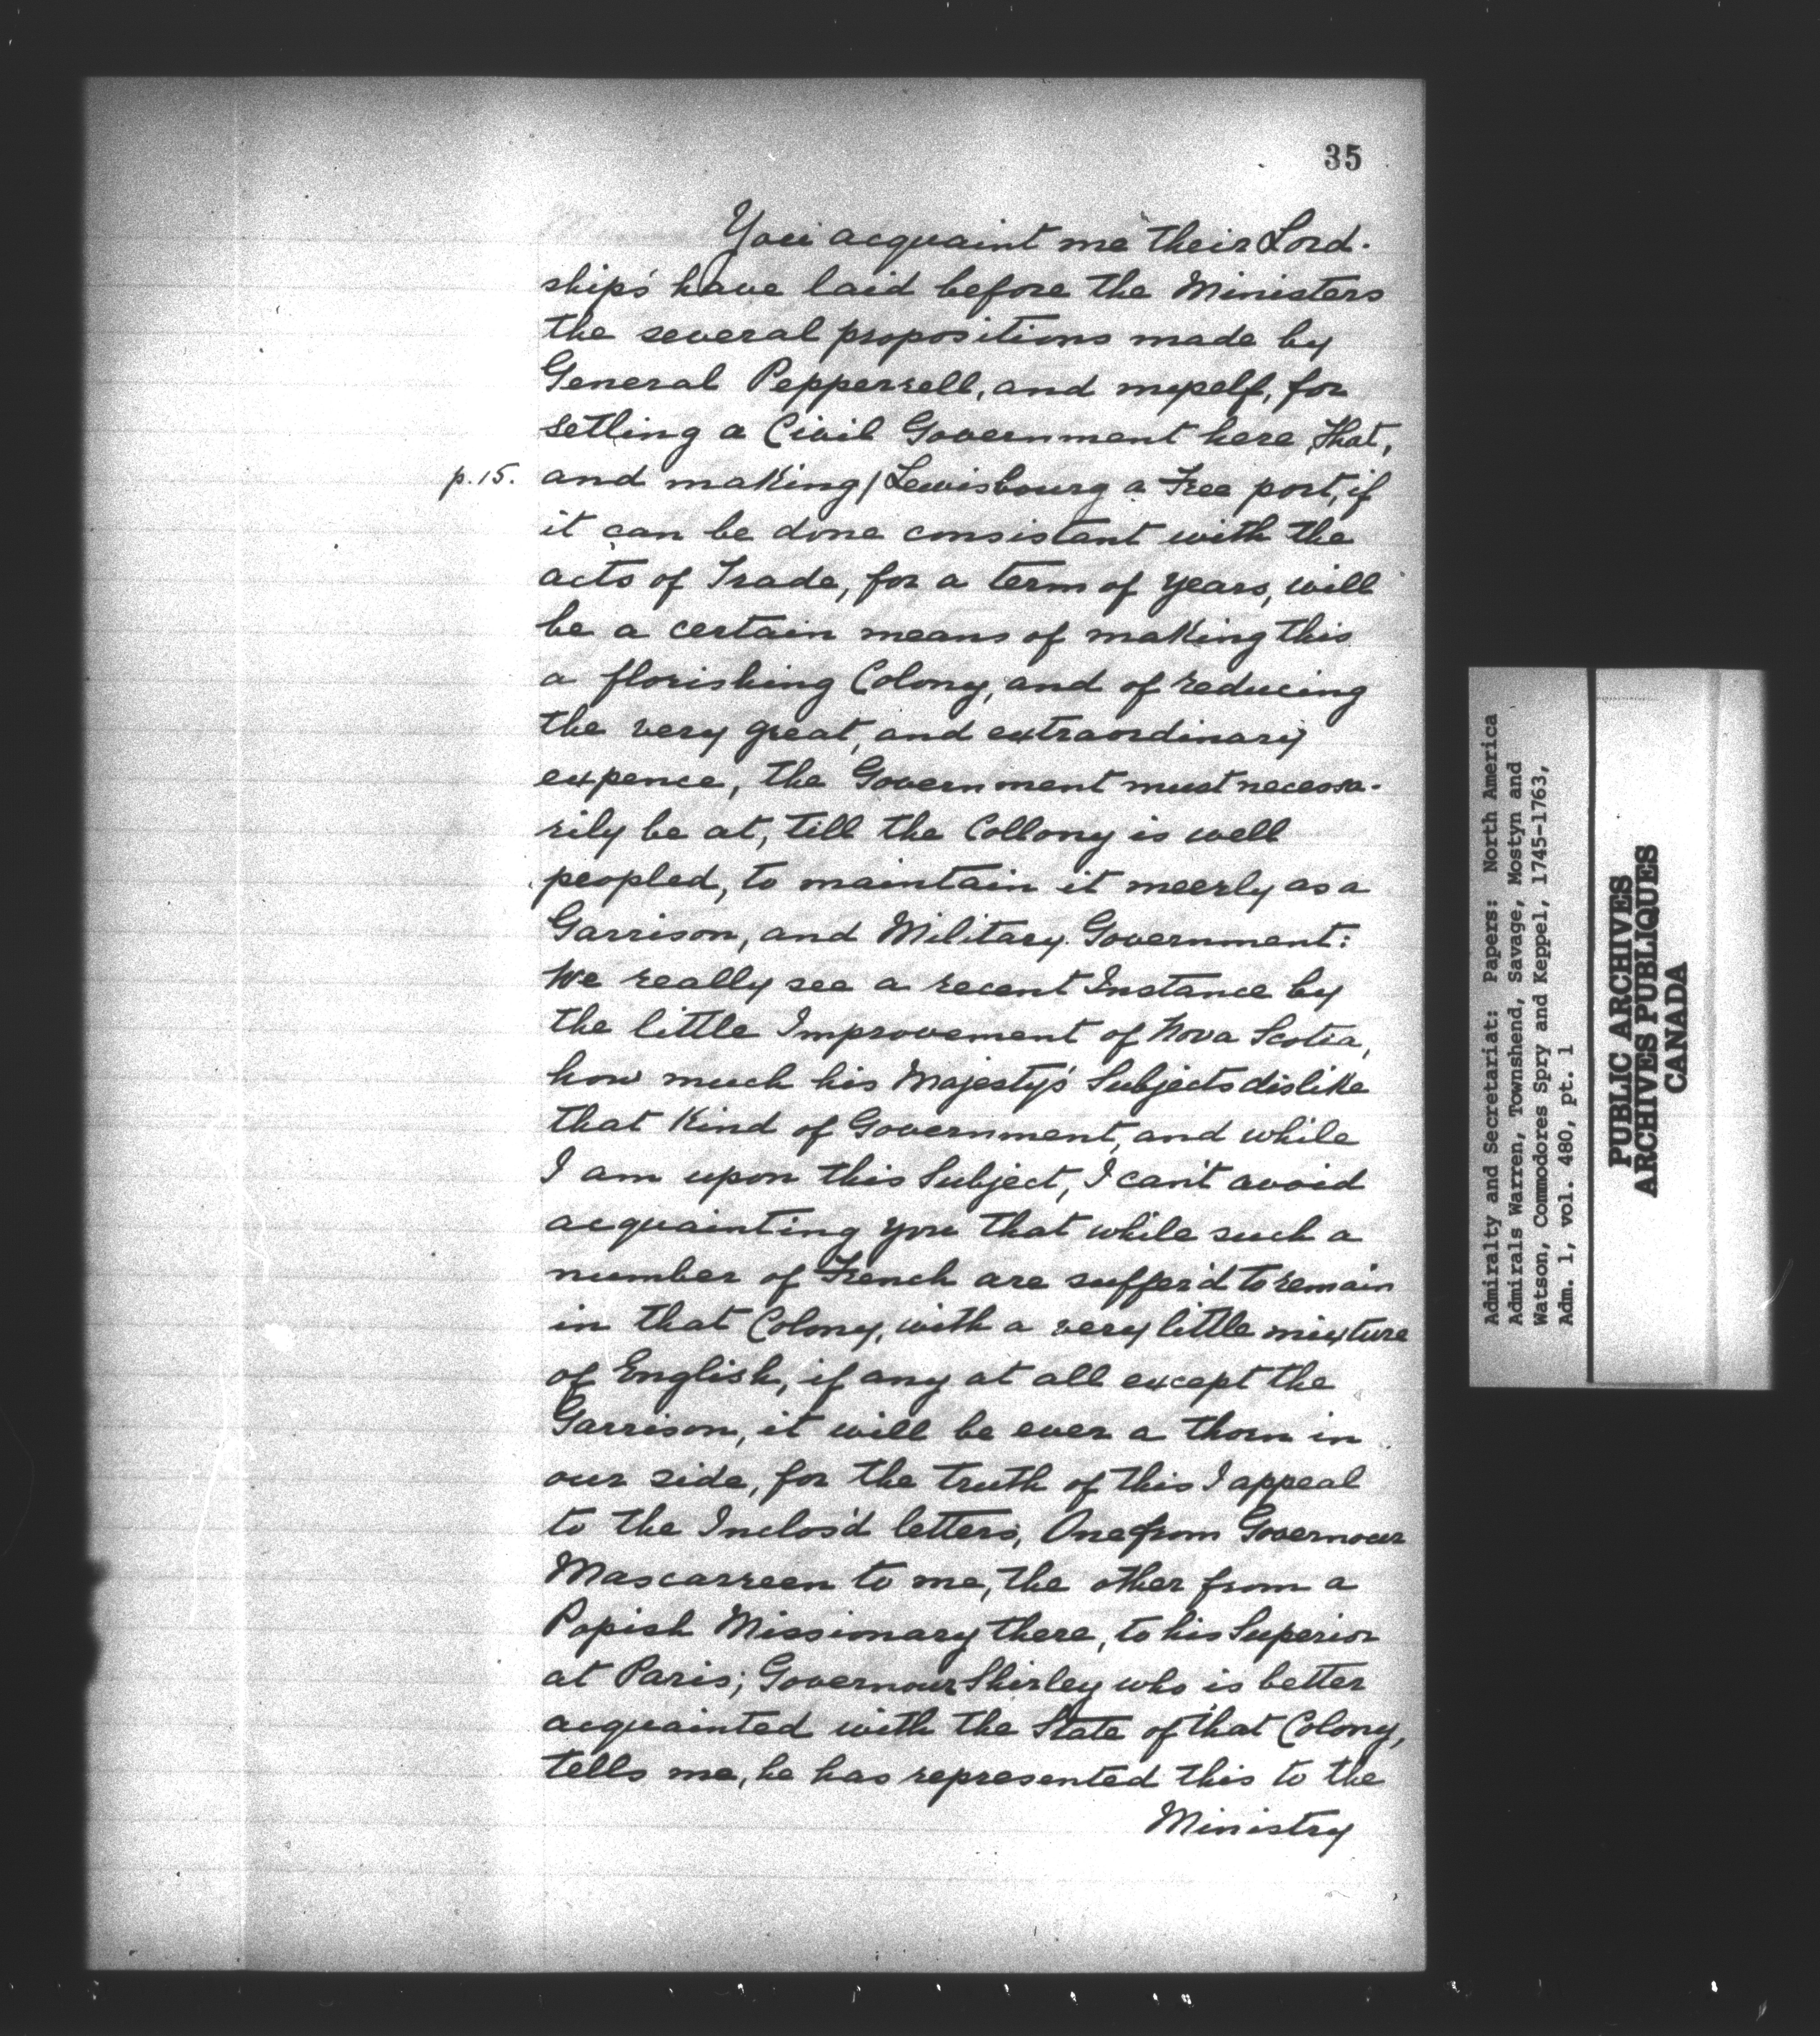 35
You acquaint me their Lord-
ship's have laid before the Ministers
the several propositions made by
General Pepperrell, and myself, for
setling a Civil Government here, that,
p.15. and making / Lewisbourg a Free port, if
it can be done consistant with the
acts of Trade, for a term of years, will
be a certain means of making this
a florishing Colony, and of reducing
the very great, and extraordinary
expence, the Government must necessa-
rily be at, till the Collony is well
peopled, to maintain it meerly as a
Garrison, and Military Government:
We really see a recent Instance by
the little Improvement of Nova Scotia,
how much his Majesty's Subjects dislike
that kind of Government, and while
I am upon this Subject, I can't avoid
acquainting you that while such a
number of French are suffer'd to remain
in that Colony, with a very little mixture
of English, if any at all except the
Garrison, it will be ever a thorn in
our side, for the truth of this I appeal
to the Inclos'd letters, One from Governour
Mascarreen to me, the other from a
Popish Missionary there, to his Superior
at Paris; Governour Shirley who is better
acquainted with the State of that Colony,
tells me, he has represented this to the
Ministry
Admiralty and Secretariat: Papers: North America
Admirals Warren, Townshend, Savage, Mostyn and
Watson, Commodores Spry and Keppel, 1745-1763,
Adm. 1, vol. 480, pt. 1
PUBLIC ARCHIVES
ARCHIVES PUBLIQUES
CANADA